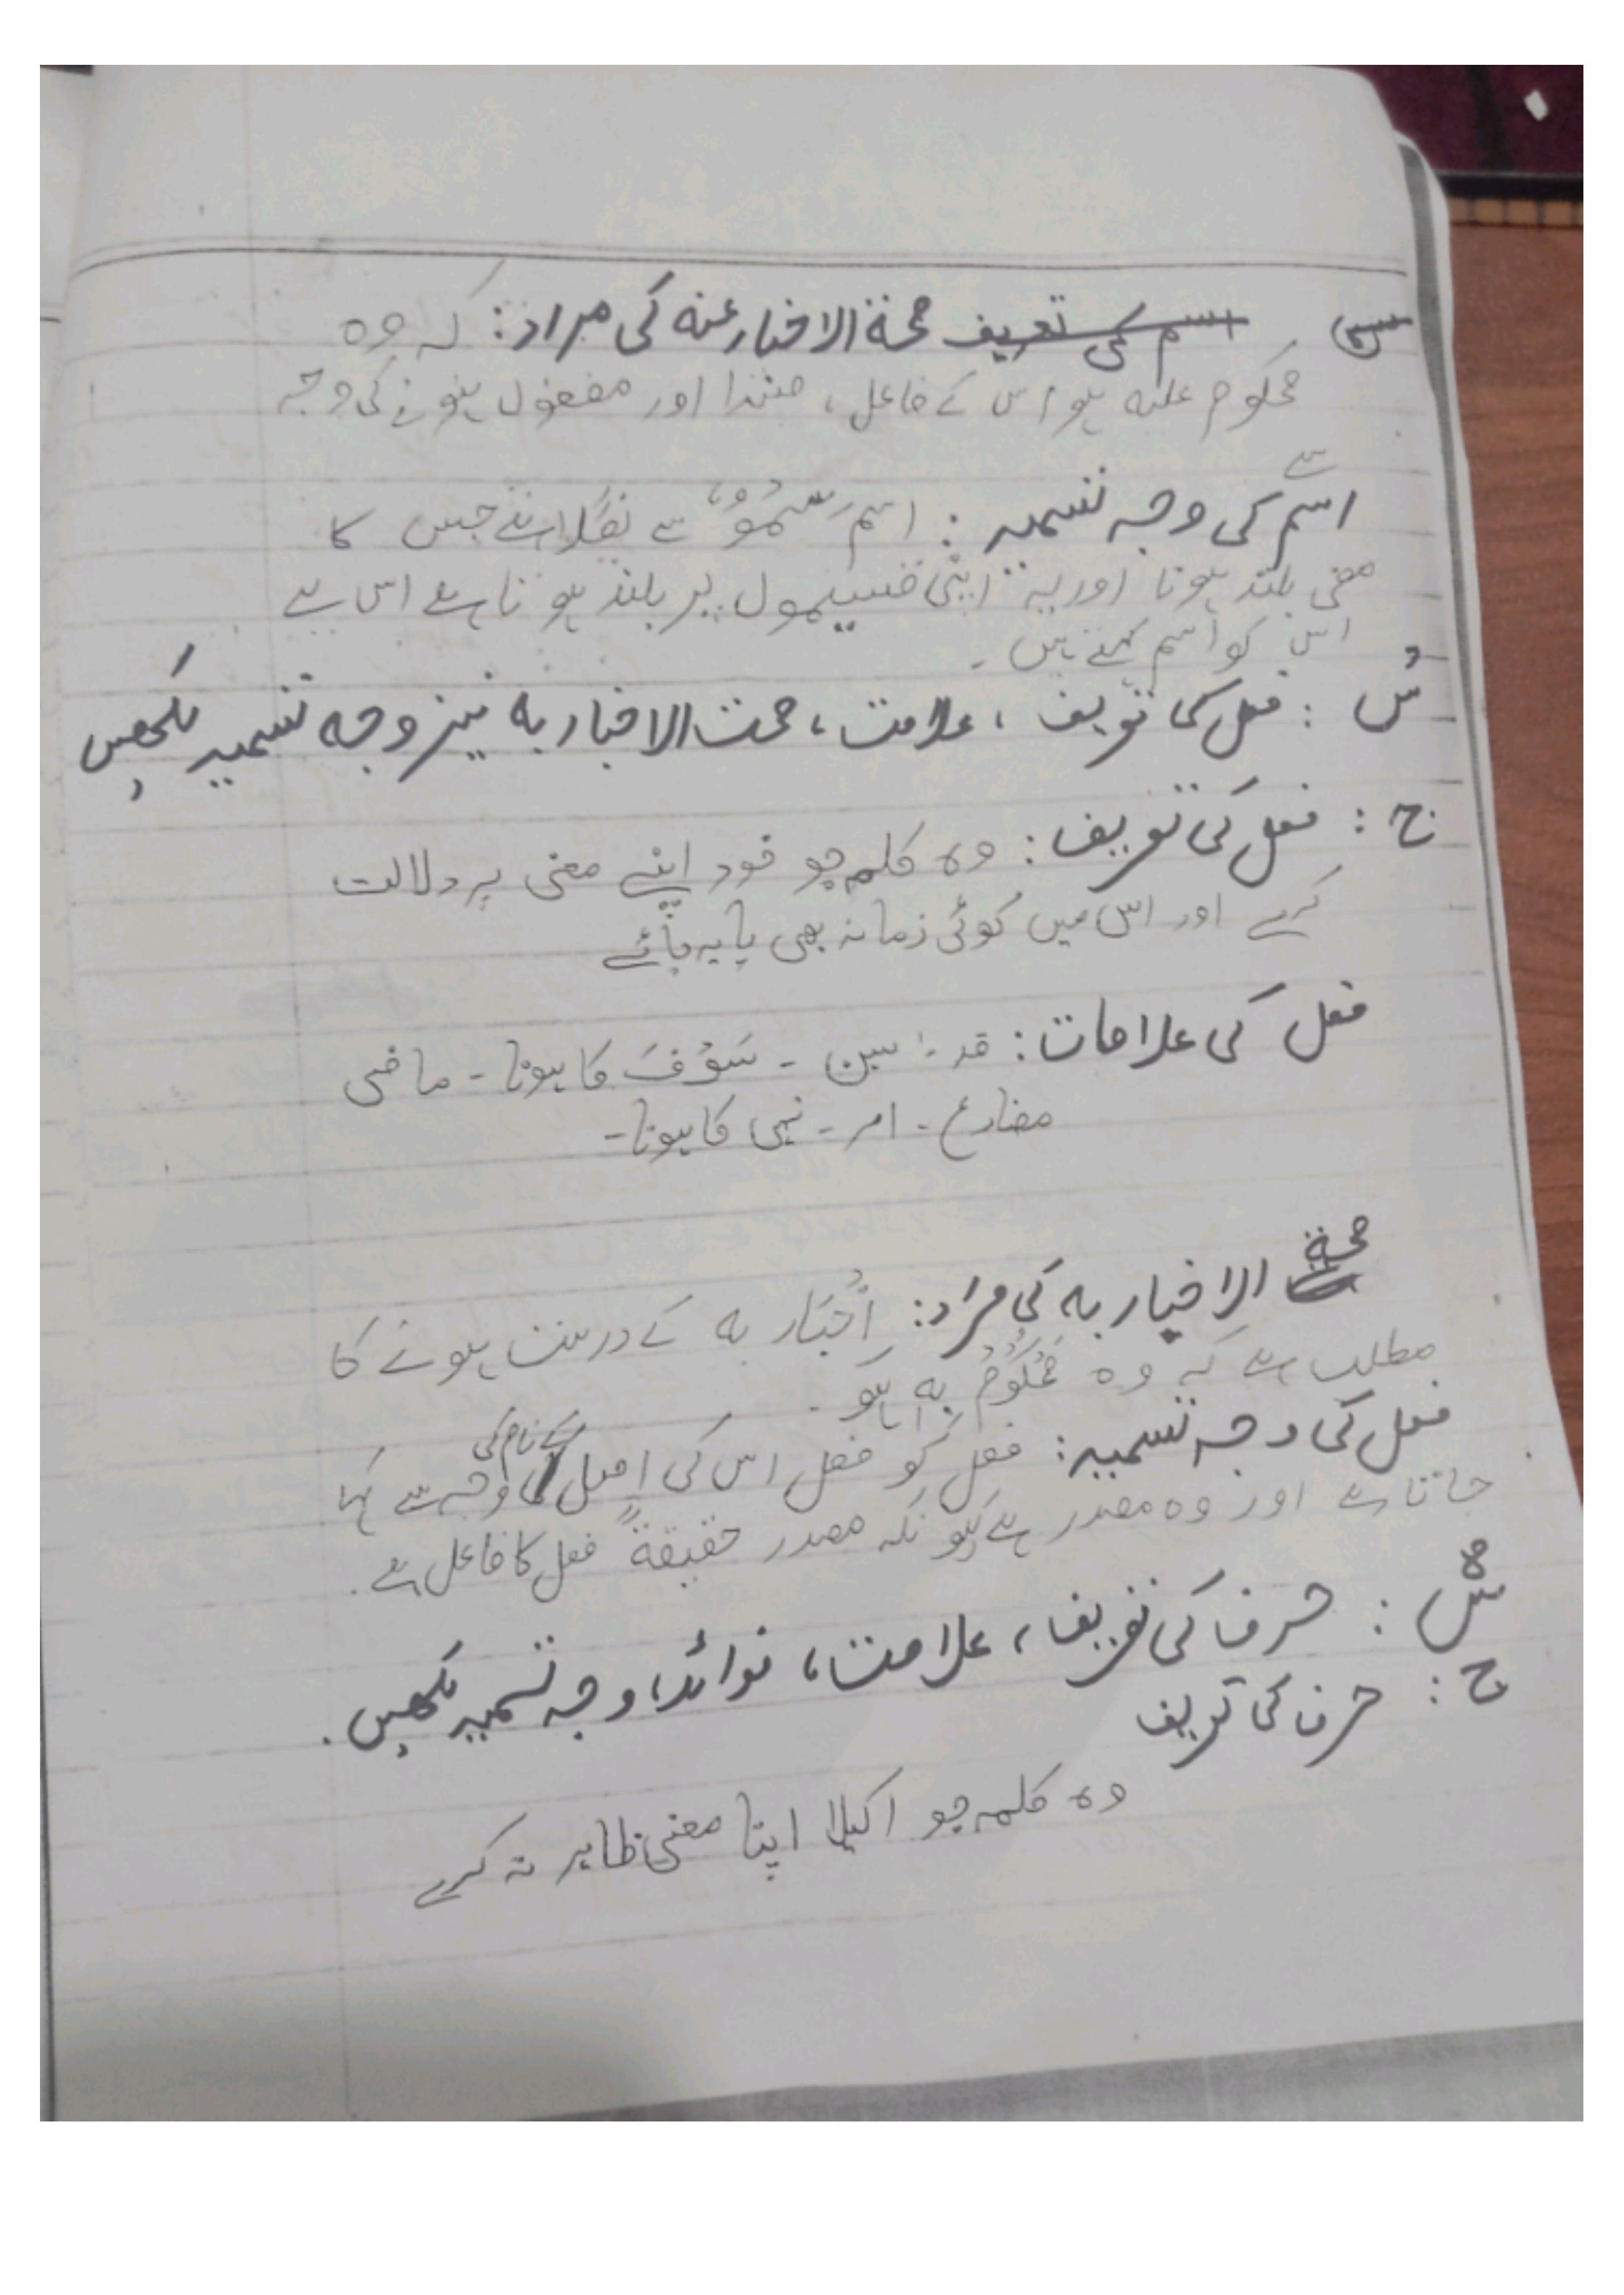 صحۃ الاخبار عنہ کی مراد: کہ وہ
محکوم علیہ ہو اس کے فاعل، مبتدا اور مفعول ہونے کی وجہ
سے
اسم کی وجہ تسمیہ: اسم سُمُوٌّ سے نکلا ہے جس کا
معنی بلند ہونا اور یہ اپنی قسیموں پر بلند ہوتا ہے اس لیے
اس کو اسم کہتے ہیں۔
س: فعل کی تعریف، علامت، صحت الاخبار بہ نیز وجہ تسمیہ لکھیں
ج: فعل کی تعریف: وہ کلمہ جو خود اپنے معنی پر دلالت
کرے اور اس میں کوئی زمانہ بھی پایہ جائے
فعل کی علامات: قد - سین - سَوْفَ کا ہونا - ماضی
مضارع - امر - نہی کا ہونا -
صحۃ الاخبار بہ کی مراد: اخبار بہ کے درست ہونے کا
مطلب ہے کہ وہ مَحْکُوْمٌ بِہٖ ہو۔
فعل کی وجہ تسمیہ: فعل کو فعل اس کی اصل کے نام کی وجہ سے کہا
جاتا ہے اور وہ مصدر ہے کیونکہ مصدر حقیقۃً فعل کا فاعل ہے۔
س۵: حرف کی تعریف، علامت، فوائد، وجہ تسمیہ لکھیں۔
ج: حرف کی تعریف
وہ کلمہ جو اکیلا اپنا معنی ظاہر نہ کرے